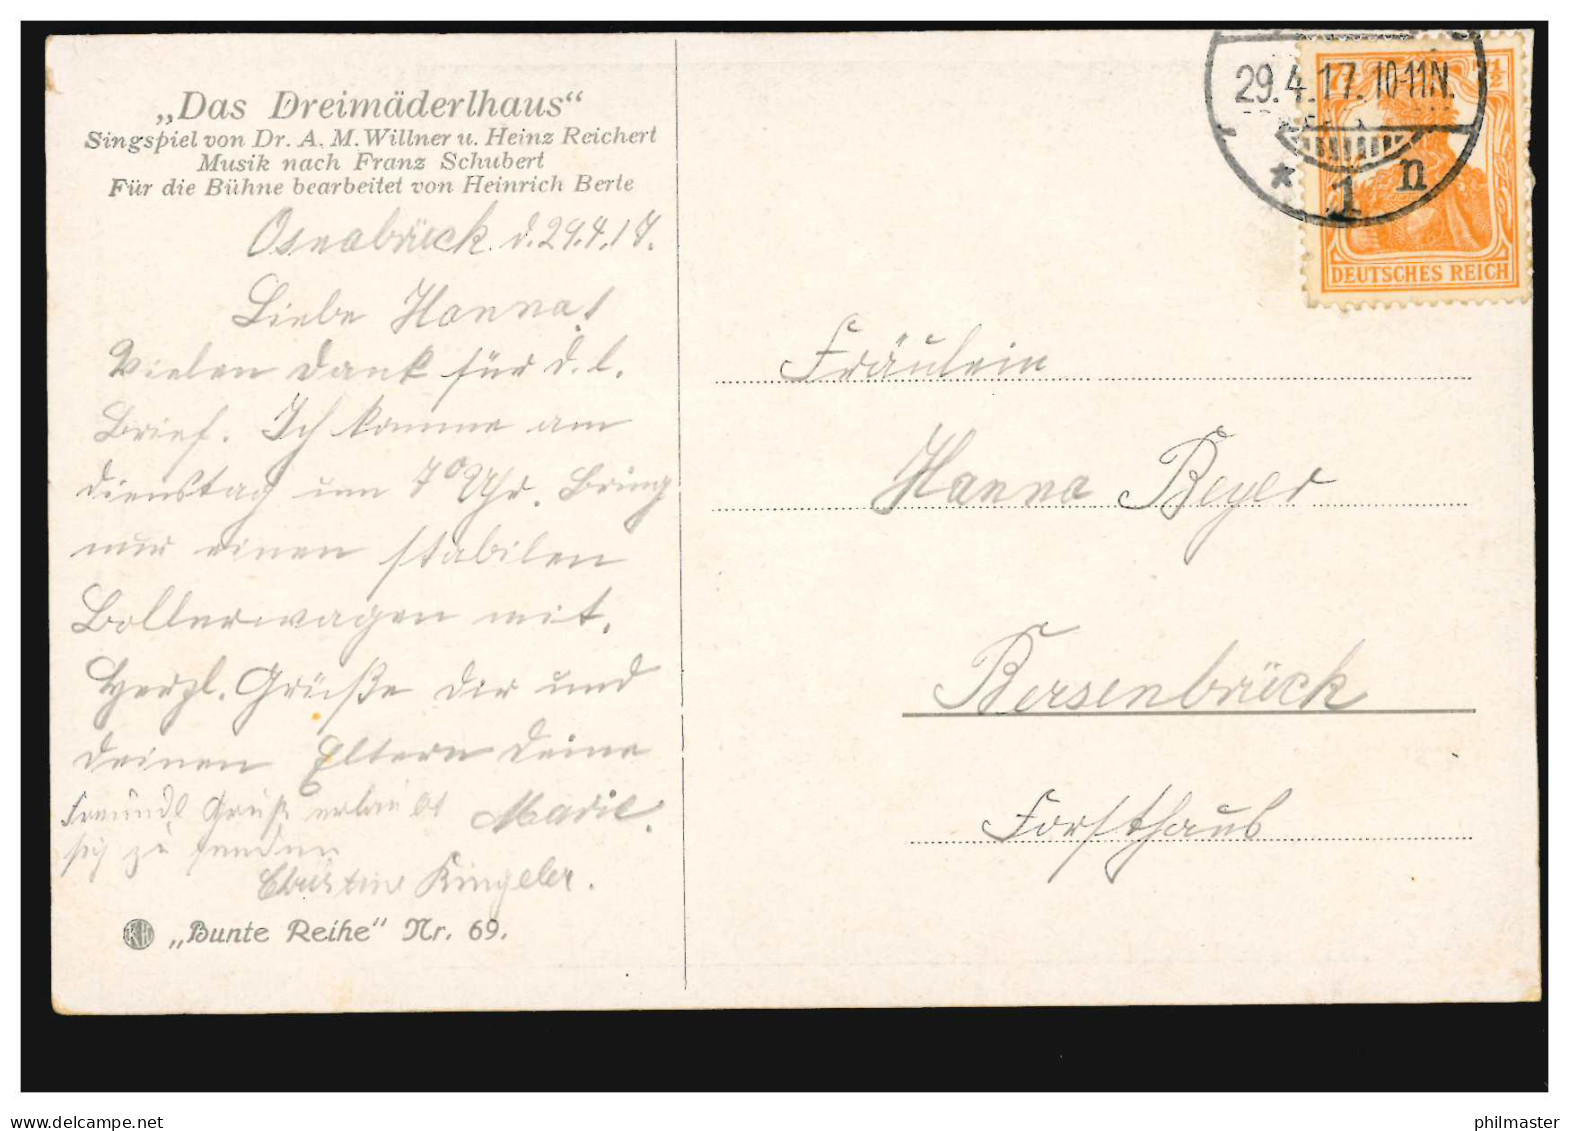 „Das Dreimäderlhaus“
Singspiel von Dr. A. M. Willner u. Heinz Reichert
Musik nach Franz Schubert
Für die Bühne bearbeitet von Heinrich Berte
Osnabrück. d. 29.4.17.
Liebe Hanna!
Vielen Dank für d. l.
Brief. Ich komme am
Dienstag um 7⁰ Uhr. Bring
nur einen stabilen
Bollerwagen mit.
Herzl. Grüße dir und
deinen Eltern Deine
Marie.
Freundl Gruß erlaubt
sich zu senden
Christine Kingeler.
KH „Bunte Reihe“ Nr. 69.
29.4.17. 10-11N.
* 1 n
7½ 7½
DEUTSCHES REICH
Fräulein
Hanna Beyer
Bersenbrück
Forsthaus
www.ansichtskarten-center.de
philmaster